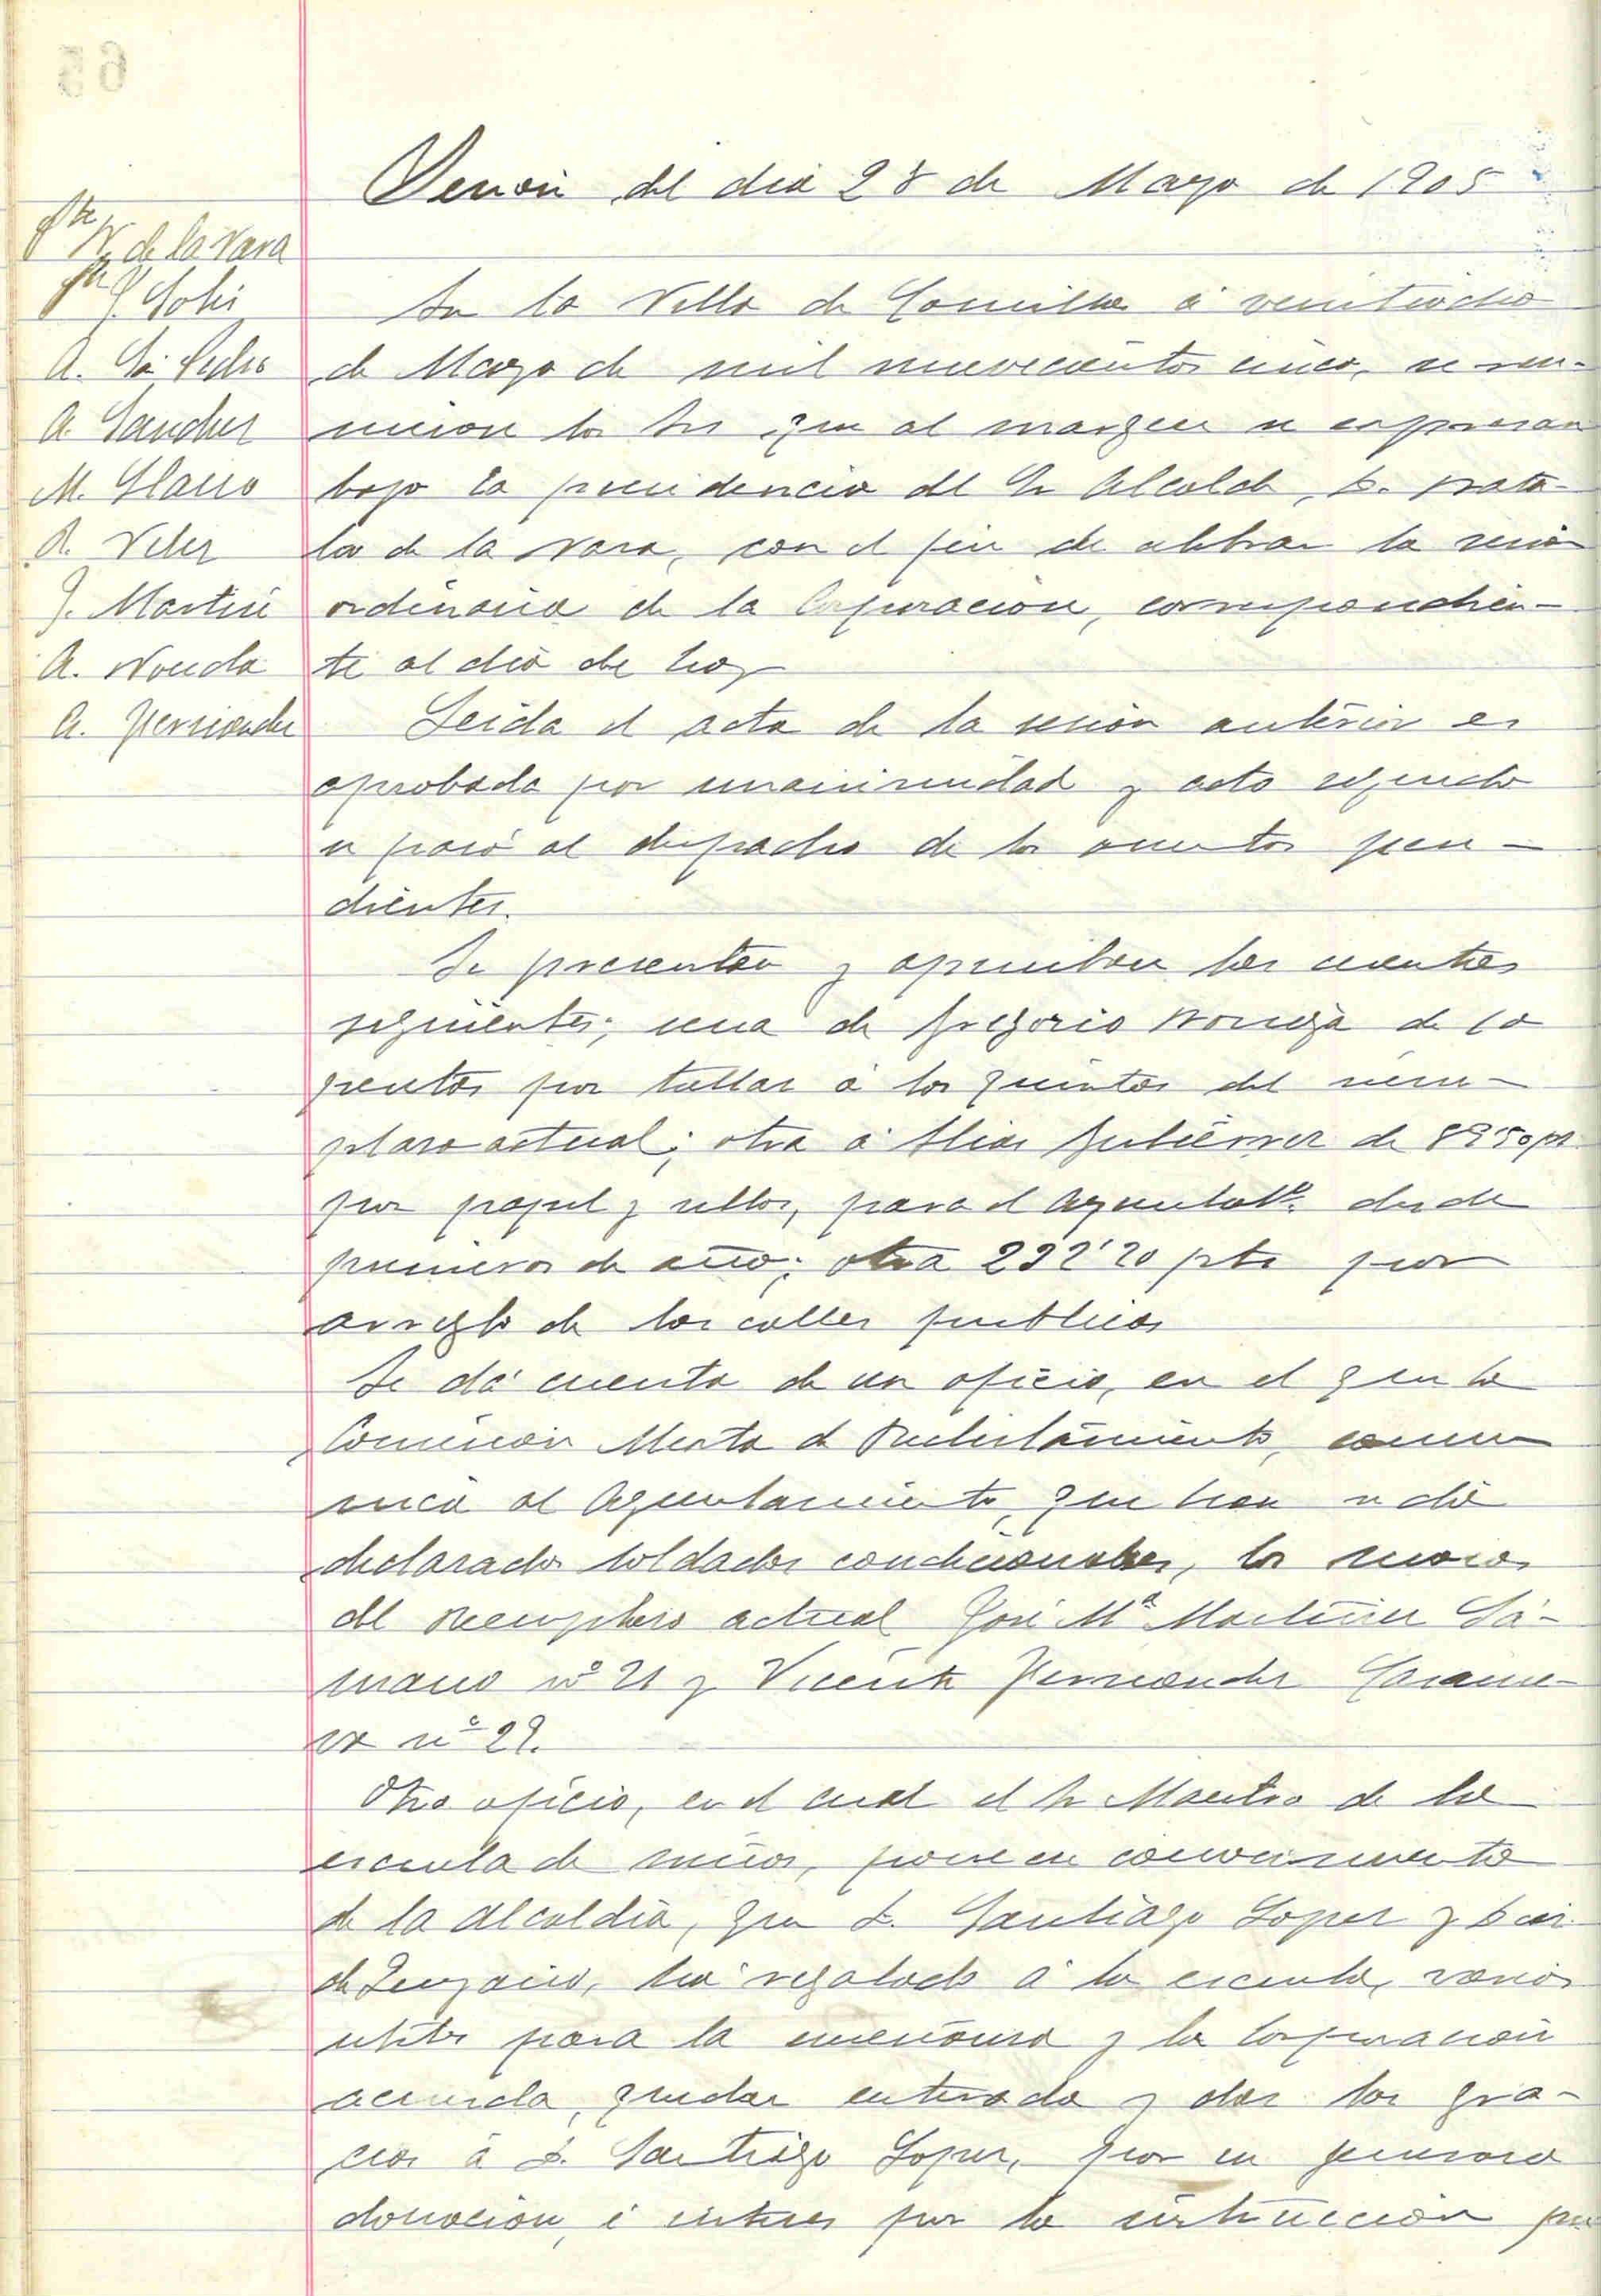 65
Sesión del dia 28 de Marzo de 1905
Pte N. de la Vara
Pte J. Gohi
A. Sn Pedro
A. Sanchez
M. Llano
R. Velez
J. Martin
A. Noceda
A. Fernandez
En la Villa de Comillas á veintiocho
de Marzo de mil novecientos cinco, se reu-
nieron los Srs que al margen se expresan
bajo la presidencia del Sr Alcalde, D. Nata-
lio de la Vara, con el fin de celebrar la sesión
ordinaria de la Corporación, correspondien-
te al dia de hoy
Leida el acta de la sesión anterior es
aprobada por unanimidad y acto seguido
se pasó al despacho de los asuntos pen-
dientes.
Se presentan y aprueban las cuentas
siguientes; una de Gregorio Noriega de 10
pesetas por tallar á los quintos del reem-
plazo actual; otra á Elias Gutiérrez de 89'50 pts
por papel y sellos, para el Ayuntatº desde
primeros de año; otra 292'20 pts por
arreglo de las calles publicas
Se dá cuenta de un oficio, en el que la
Comision Mixta de Reclutamiento, comu
nica al Ayuntamiento, que han sido
declarados soldados condicionales, los mozos
del Reemplazo actual José Mª Martinez Sá-
mano nº 21 y Vicente Fernandez
nº 29.
Otro oficio, en el cual el Sr Maestro de la
escuela de niños, pone en conocimiento
de la Alcaldia, que D. Santiago Lopez y Diaz
de Quijano, ha regalado á la escuela, varios
utiles para la enseñanza y la Corporación
acuerda, quedar enterada y dar las gra-
cias á D. Santiago Lopez, por su generosa
donación é interes por la instrucción pu